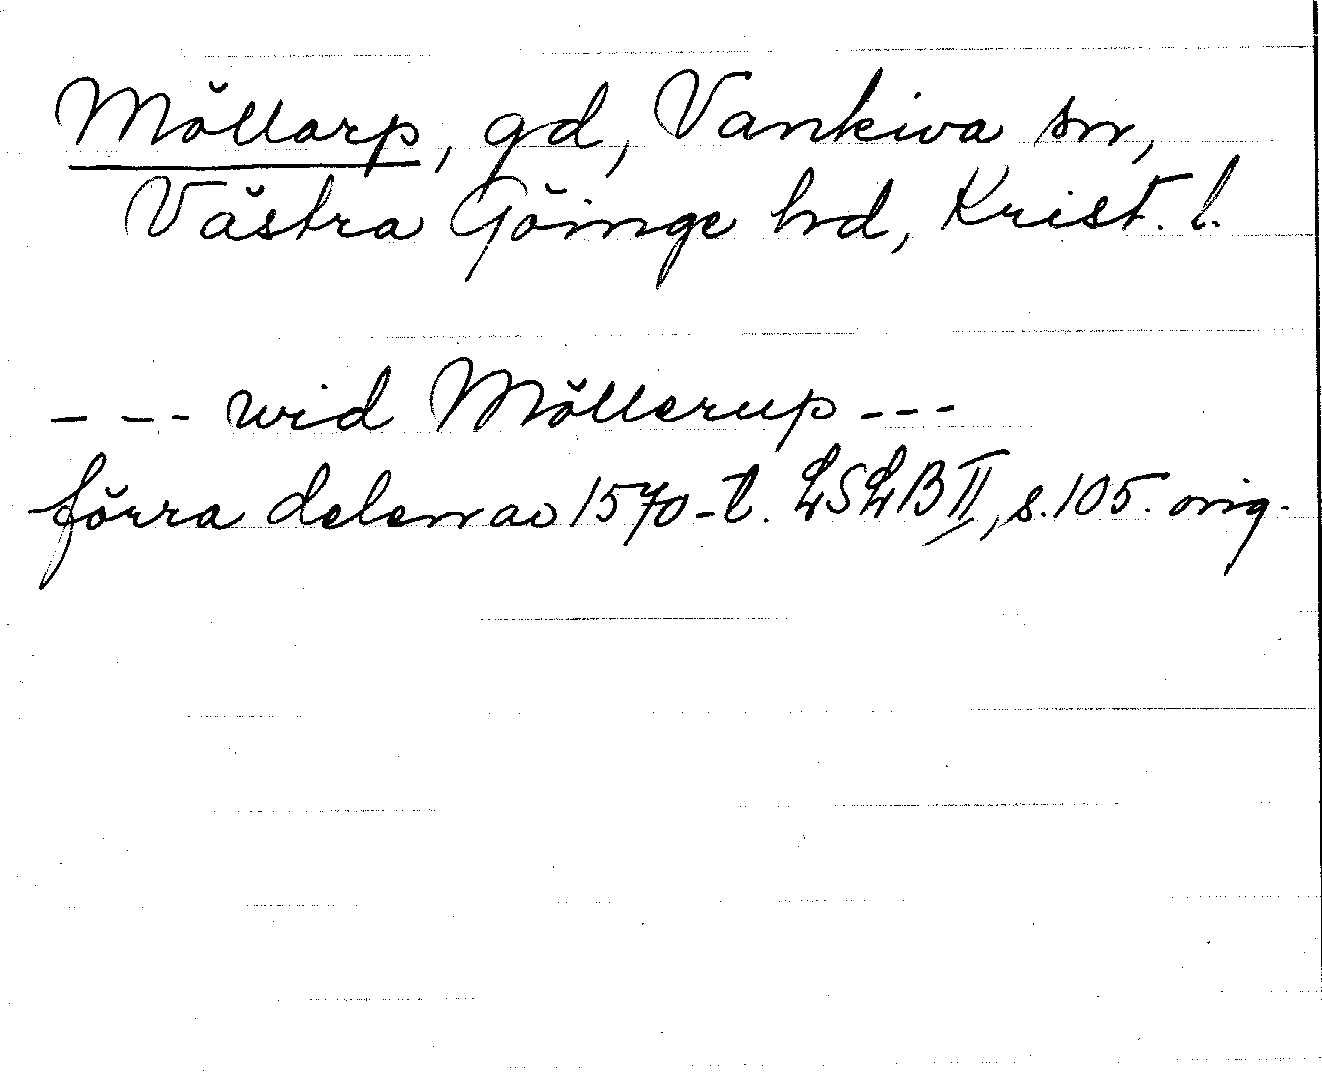 Möllarp, gd, Vankiva sn,
Västra Göinge hd, Krist. l.
- - - wid Möllerup - - -
förra delen av 1570-t. LSLB II, s. 105. orig.